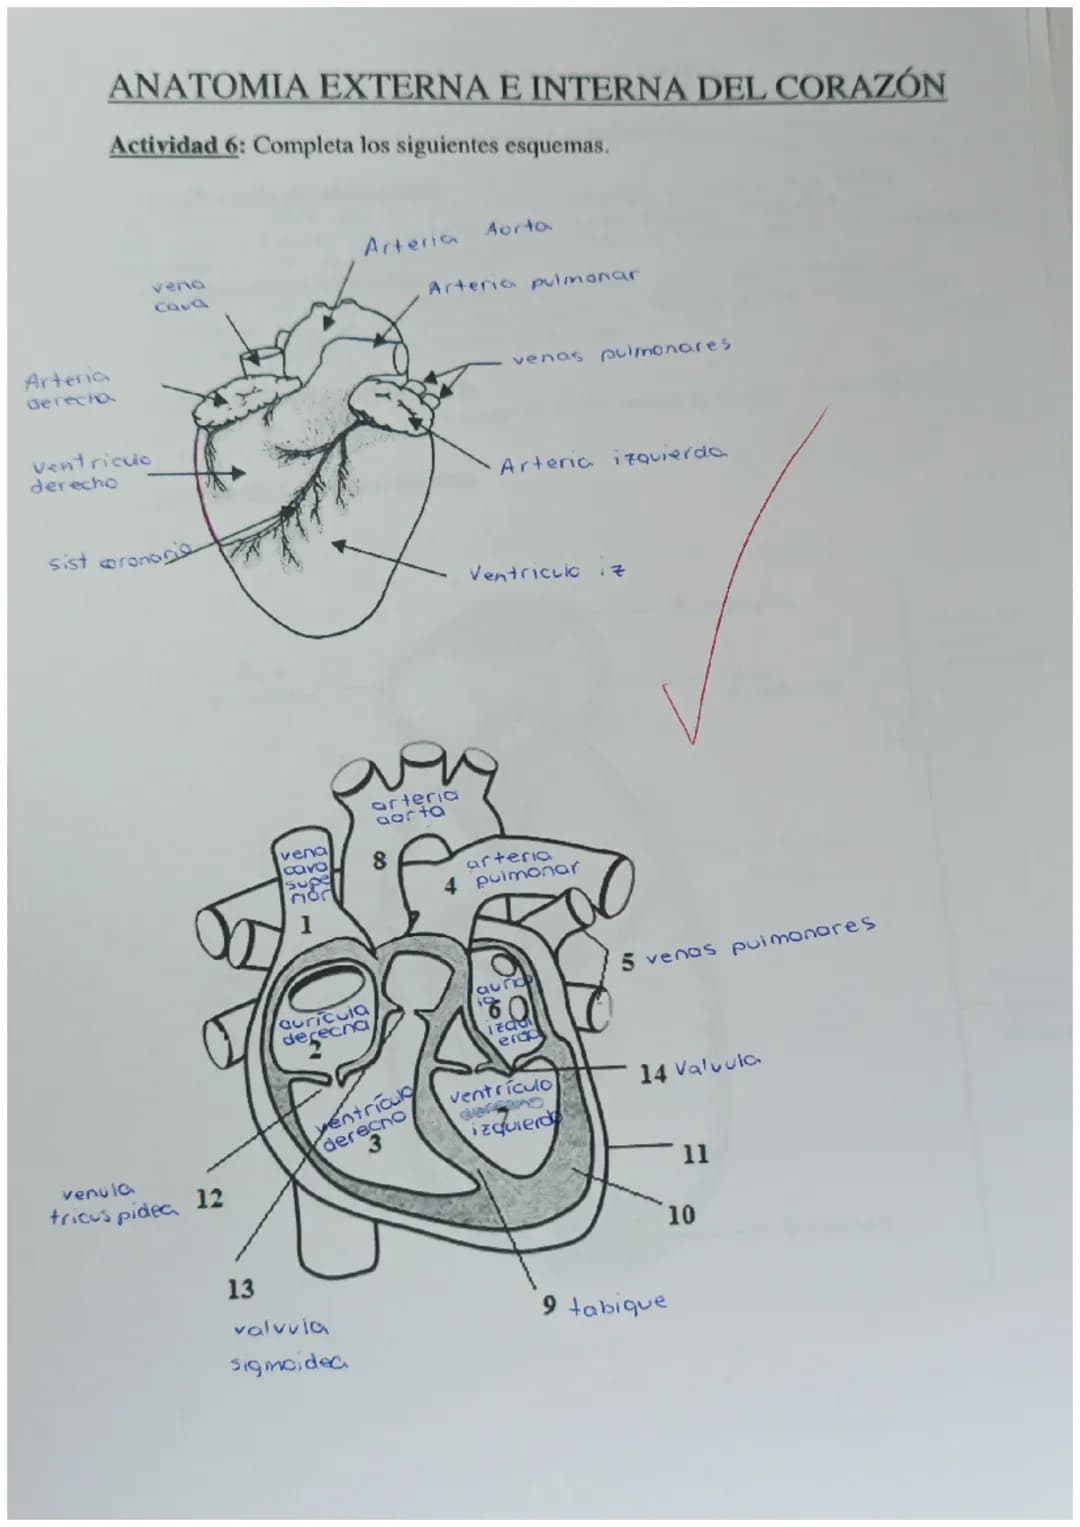 ANATOMIA EXTERNA E INTERNA DEL CORAZÓN
Actividad 6: Completa los siguientes esquemas.
Arteria Aorta
vena
cava
Arteria pulmonar
venas pulmonares
Arteria
derecha
Arteria izquierda
Ventriculo
derecho
sist coronario
Ventriculo iz
arteria
aorta
8
vena
cava
supe
rior
1
arteria
pulmonar
4
5 venas pulmonares
aurícula
derecha
2
auricu
la
6
izqui
erda
14 Valvula
ventrículo
derecho
3
ventrículo
7
izquierdo
11
10
venula
tricuspidea
12
13
valvula
sigmoidea
9 tabique